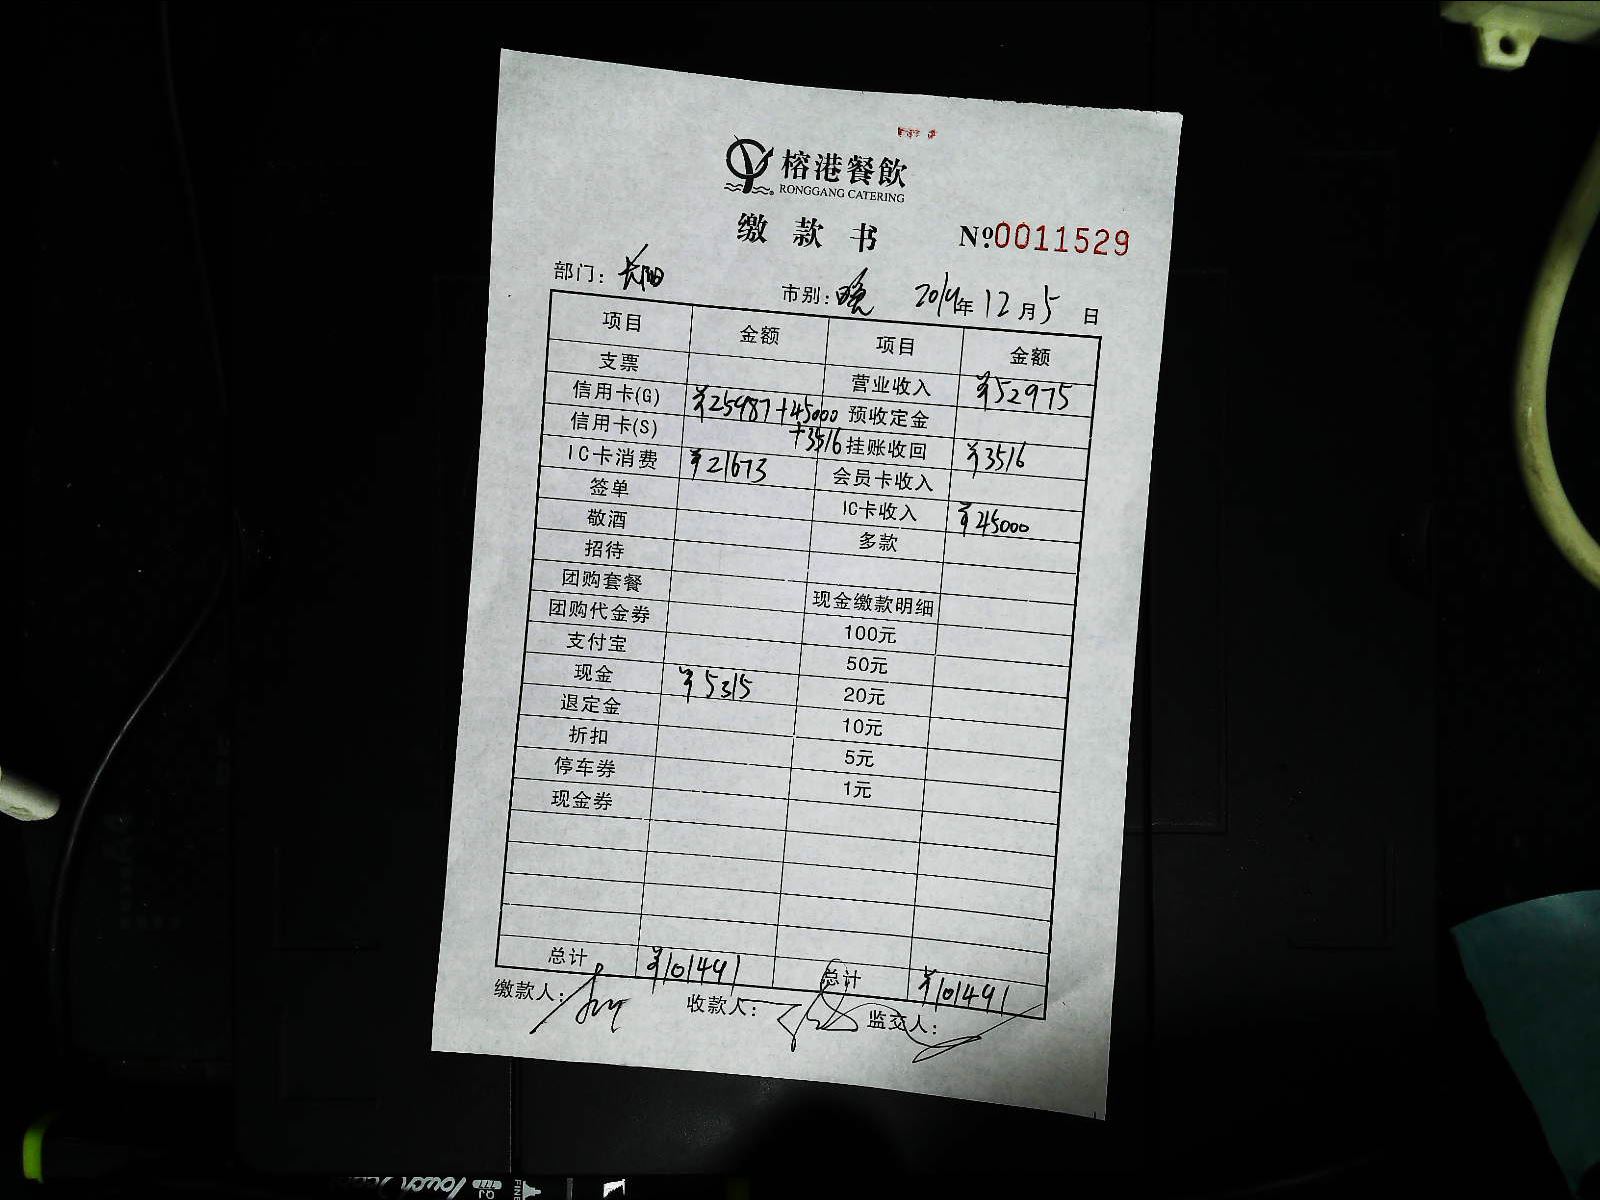 榕港餐飲
RONGGANG CATERING
缴款书 №0011529
部门: 长阳 市别: 晚 2019年12月5日
项目 金额 项目 金额
支票 营业收入 ¥52975
信用卡(G) ¥25987+45000 预收定金
信用卡(S) +3516 挂账收回 ¥3516
IC卡消费 ¥21673 会员卡收入
签单 IC卡收入 ¥45000
敬酒 多款
招待
团购套餐 现金缴款明细
团购代金券 100元
支付宝 50元
现金 ¥5315 20元
退定金 10元
折扣 5元
停车券 1元
现金券
总计 ¥101491 总计 ¥101491
缴款人: 收款人: 监交人: